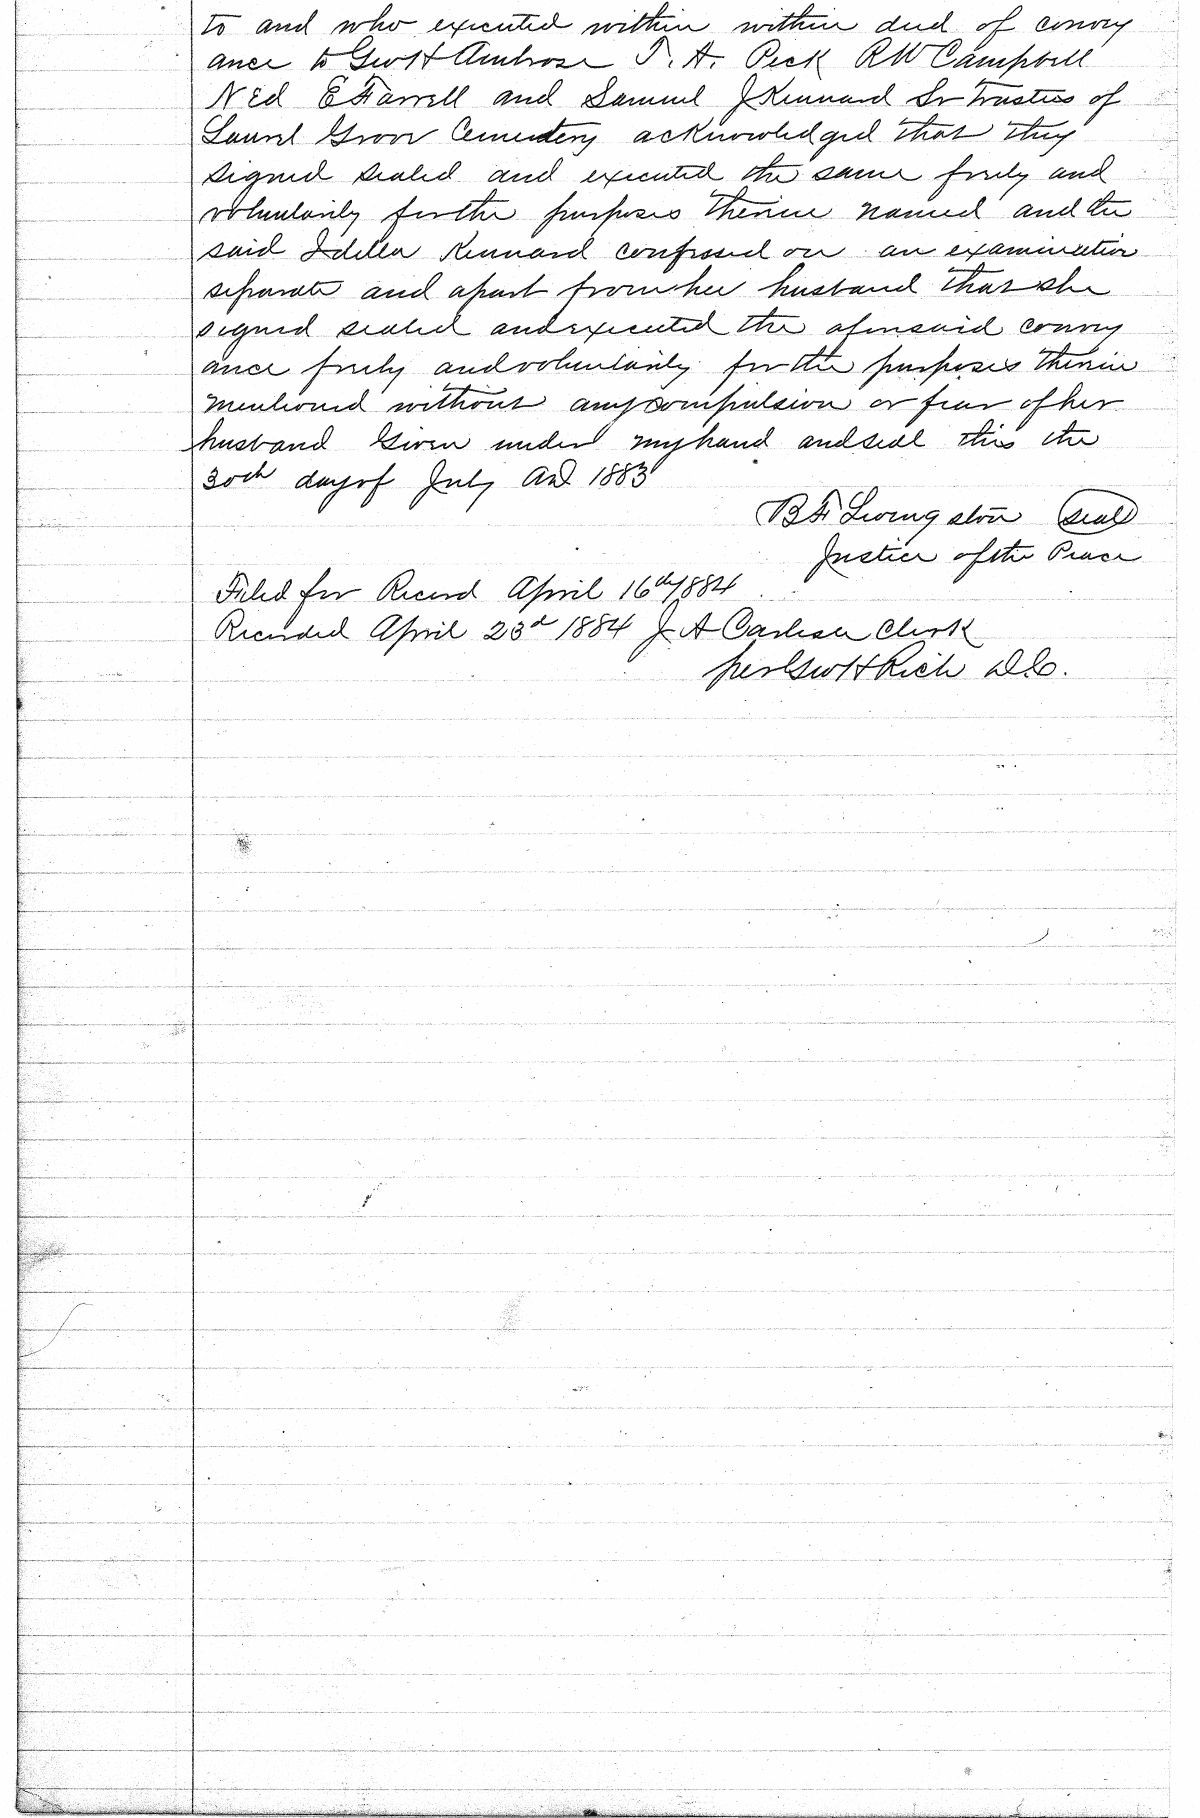 to and who executed within within deed of convey
ance to Geo H Ambrose T. A. Peck R W Campbell
N Ed E Farrell and Samuel J Kennard Sr Trustees of
Laurel Grove Cemetery acknowledged that they
signed sealed and executed the same freely and
voluntarily for the purposes therein named and the
said Idella Kennard confessed on an examination
separate and apart from her husband that she
signed sealed and executed the aforesaid convey
ance freely and voluntarily for the purposes therein
mentioned without any compulsion or fear of her
husband Given under my hand and seal this the
30th day of July AD 1883
B F Livingston Seal
Justice of the Peace
Filed for Record April 16th 1884
Recorded April 23d 1884 J. A Carlisle Clerk
per Geo H Rich D.C.